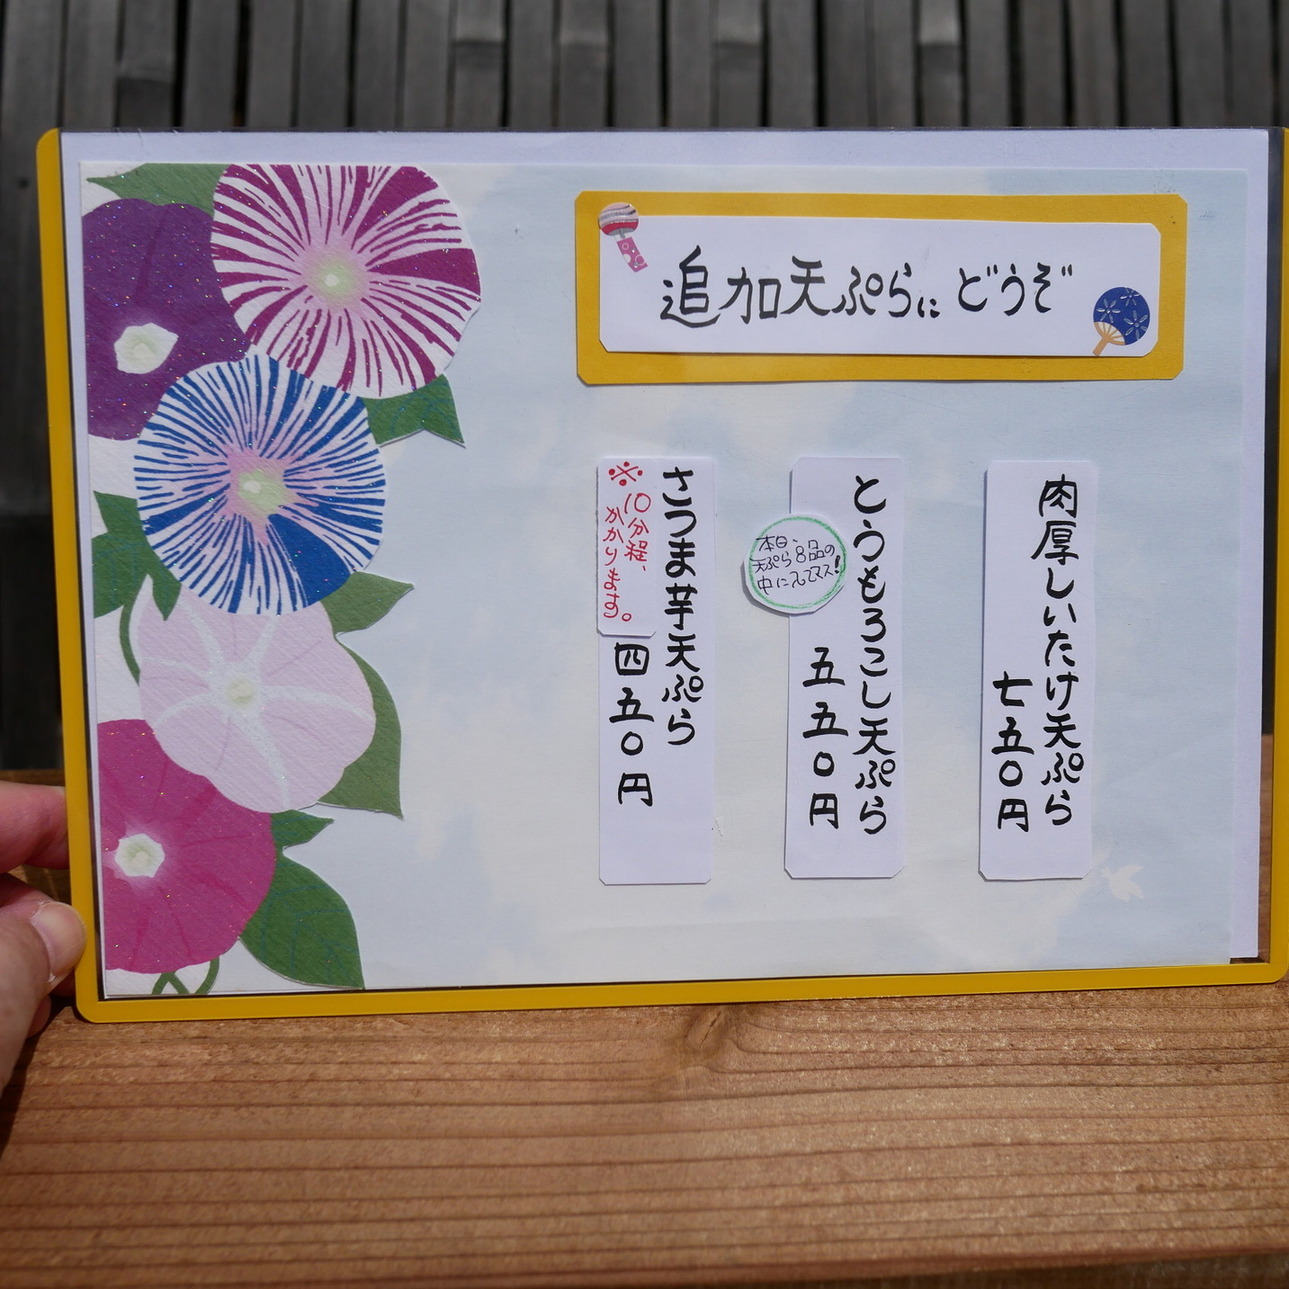 追加天ぷらにどうぞ
肉厚しいたけ天ぷら
七五〇円
とうもろこし天ぷら
五五〇円
本日、
天ぷら8品の
中に入ってマス!
さつま芋天ぷら
四五〇円
※10分程、
かかります。